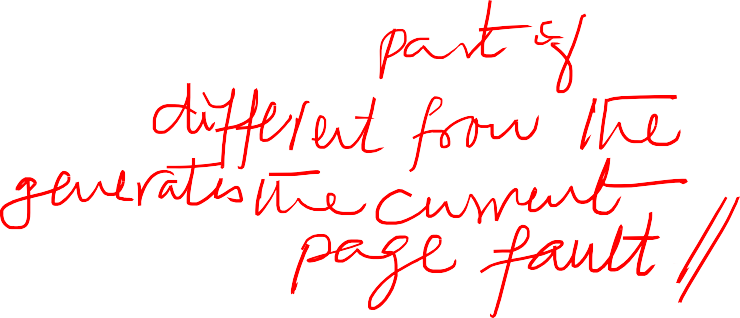 part of
different from the
generates the current
page fault //